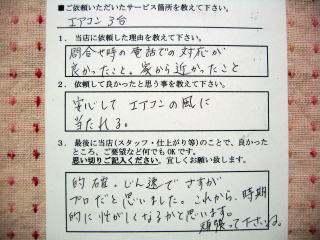 ■ご依頼いただいたサービス箇所を教えて下さい。
エアコン 3台
1. 当店に依頼した理由を教えて下さい。
問合せ時の電話での対応が
良かったこと。家から近かったこと
2. 依頼して良かったと思う事を教えて下さい。
安心して エアコンの風に
当たれる。
3. 最後に当店(スタッフ・仕上がり等)のことで、良かった
ところ、ご要望など何でもOKです。
思い切りご記入ください。宜しくお願い致します。
的確。じん速で さすが
プロだと思いました。これから、時期
的に忙がしくなるかと思います。
頑張って下さいね。